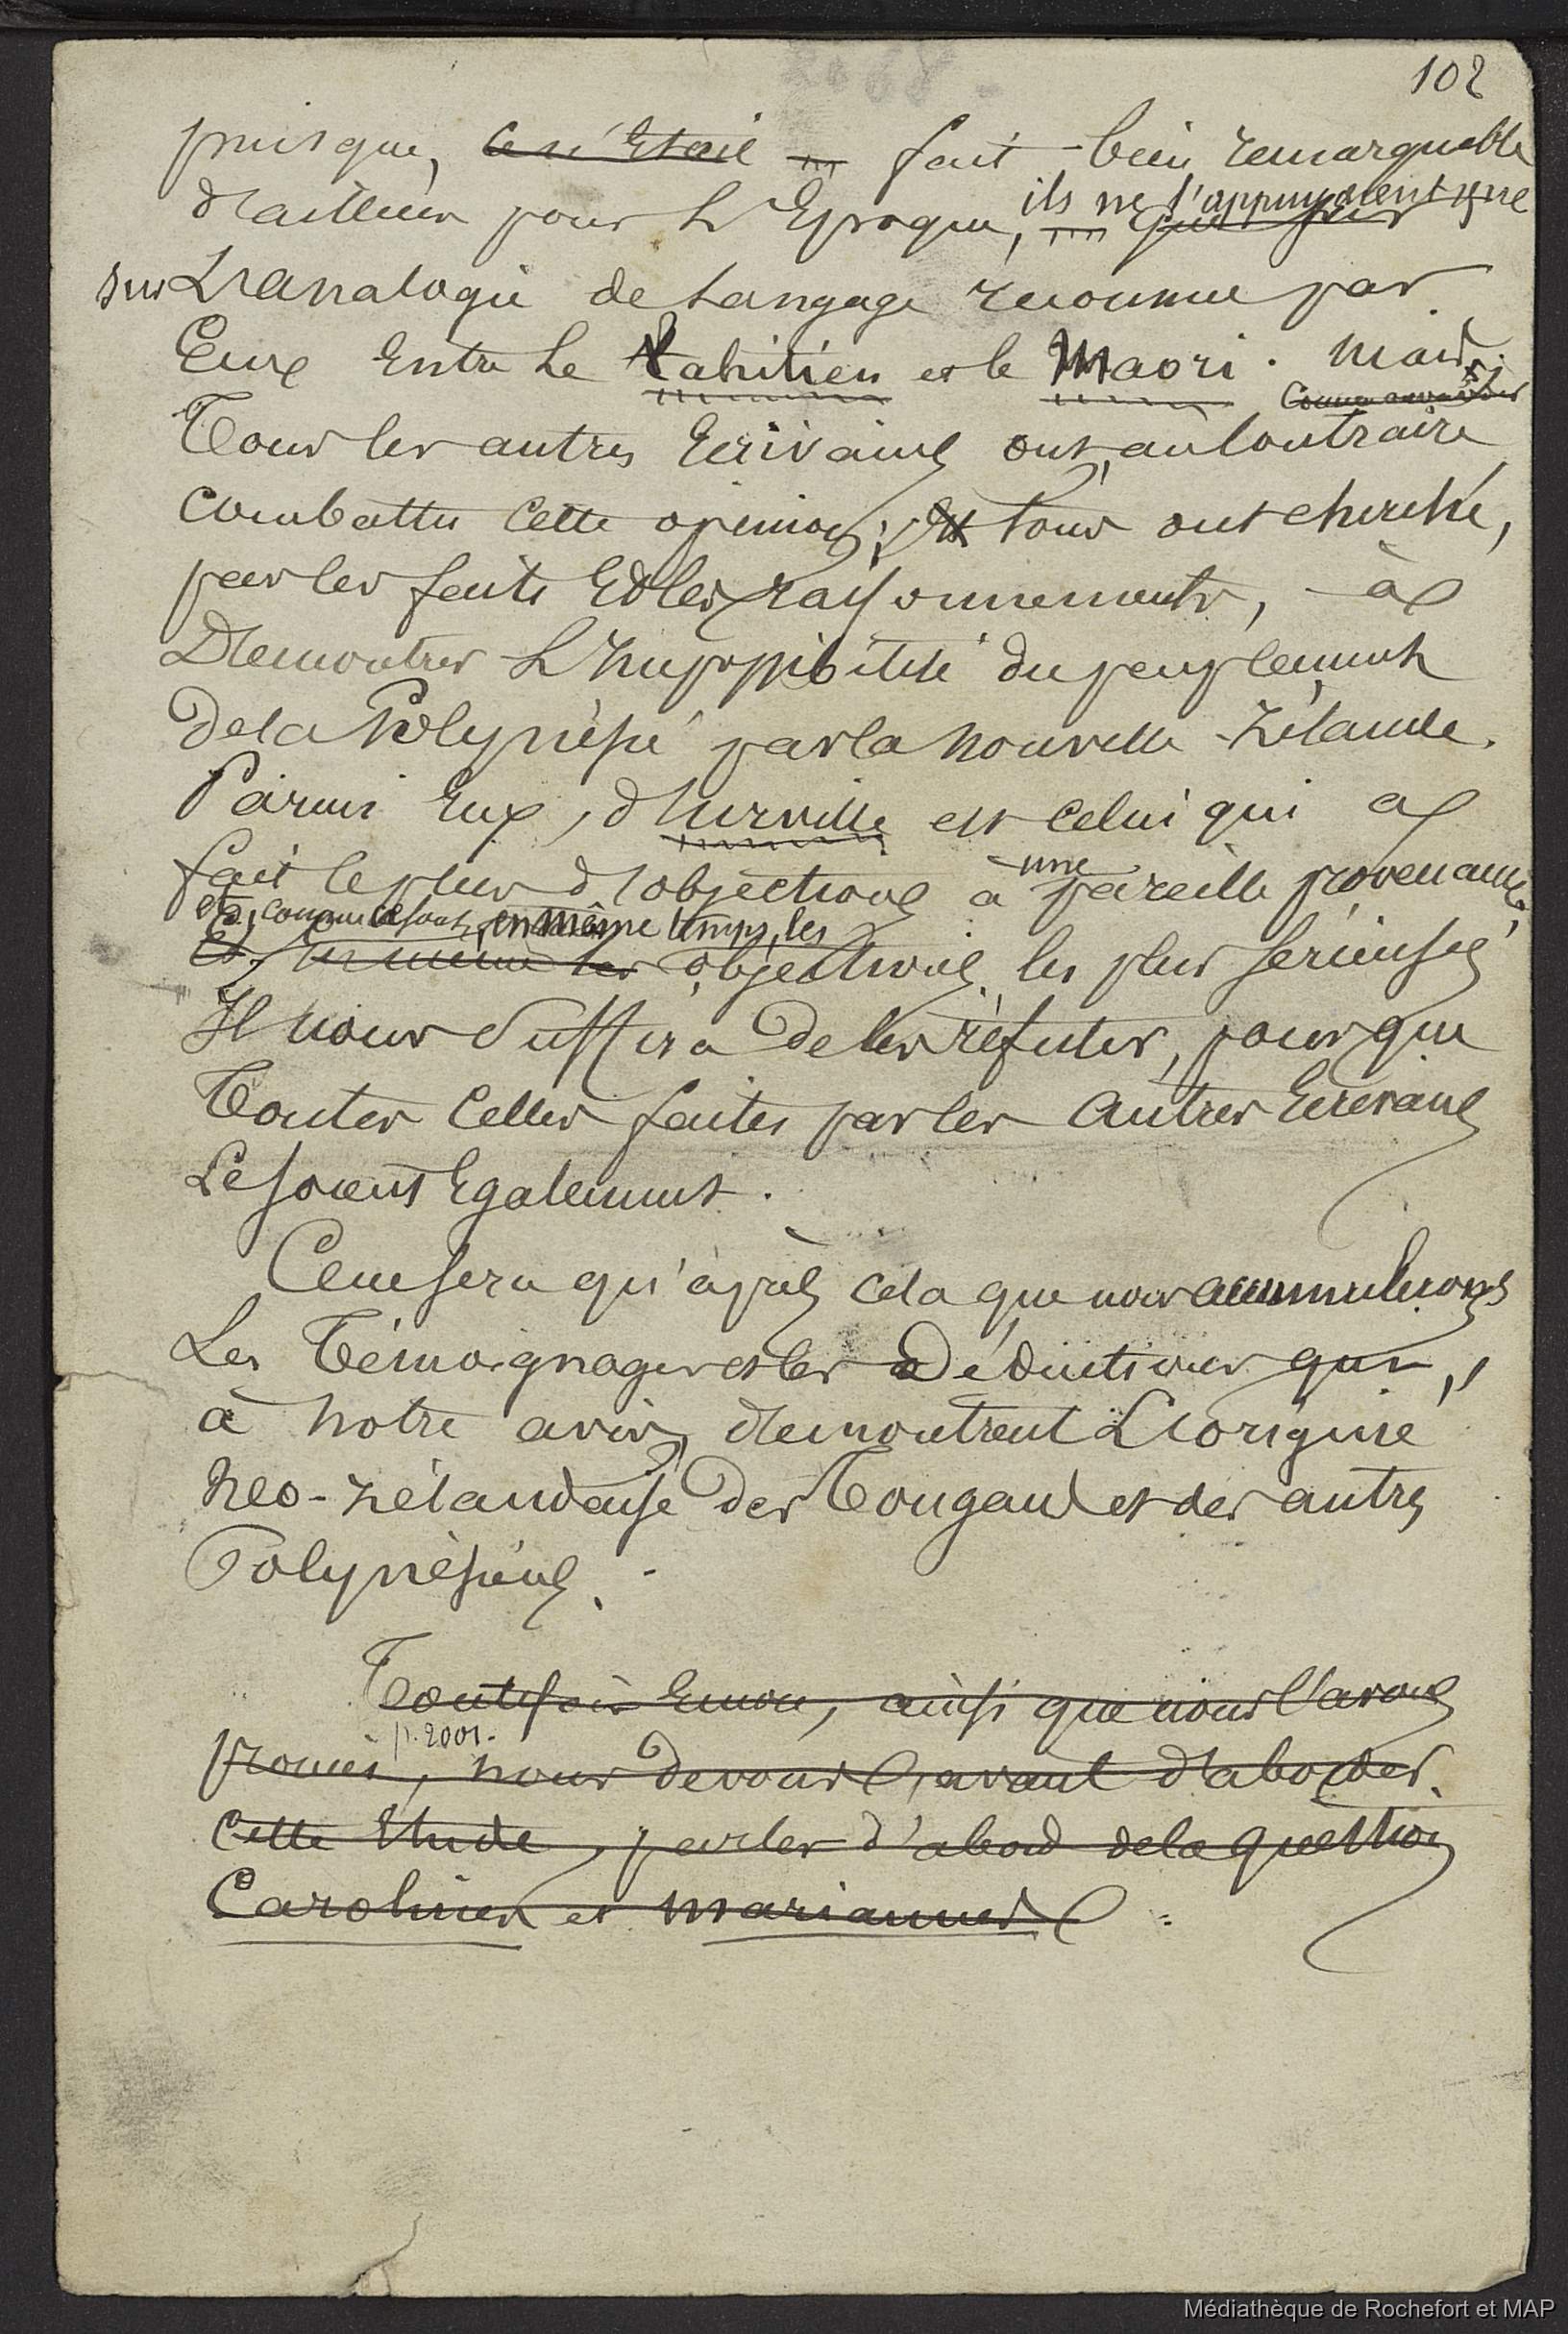 102
puisque, ce n'était — fait bien remarquable
d'ailleurs pour l'Epoque, ils ne l'appuyaient que
sur L'analogie de Langage reconnue par
Eux Entre Le tahitien et le Maori. mais si
Tous les autres Ecrivains ont, au Contraire
combattu cette opinion; Et tous ont cherché,
par les faits Et les raisonnements, à
Démontrer L'Impossibilité du peuplement
de la Polynésie par la nouvelle-Zélande.
Parmi Eux, d'Urville est celui qui a
fait le plus d'objections à une pareille provenance
et, comme ce sont, en même temps, les
Et, en même les objections les plus sérieuses
Il nous Suffira de les réfuter, pour que
Toutes Celles faites par les Autres Ecrivains
Le soient Egalement.
Ce ne sera qu'après cela que nous accumulerons
Les Témoignages et les Déductions qui,
à notre avis, démontrent L'origine
Néo-zélandaise des Tongans et des autres
Polynésiens.
Toutefois Encore, ainsi que nous l'avons
p. 2001.
promis, nous devons, avant d'aborder
cette Etude, parler d'abord de la question
Carolines et Mariannes.
Médiathèque de Rochefort et MAP